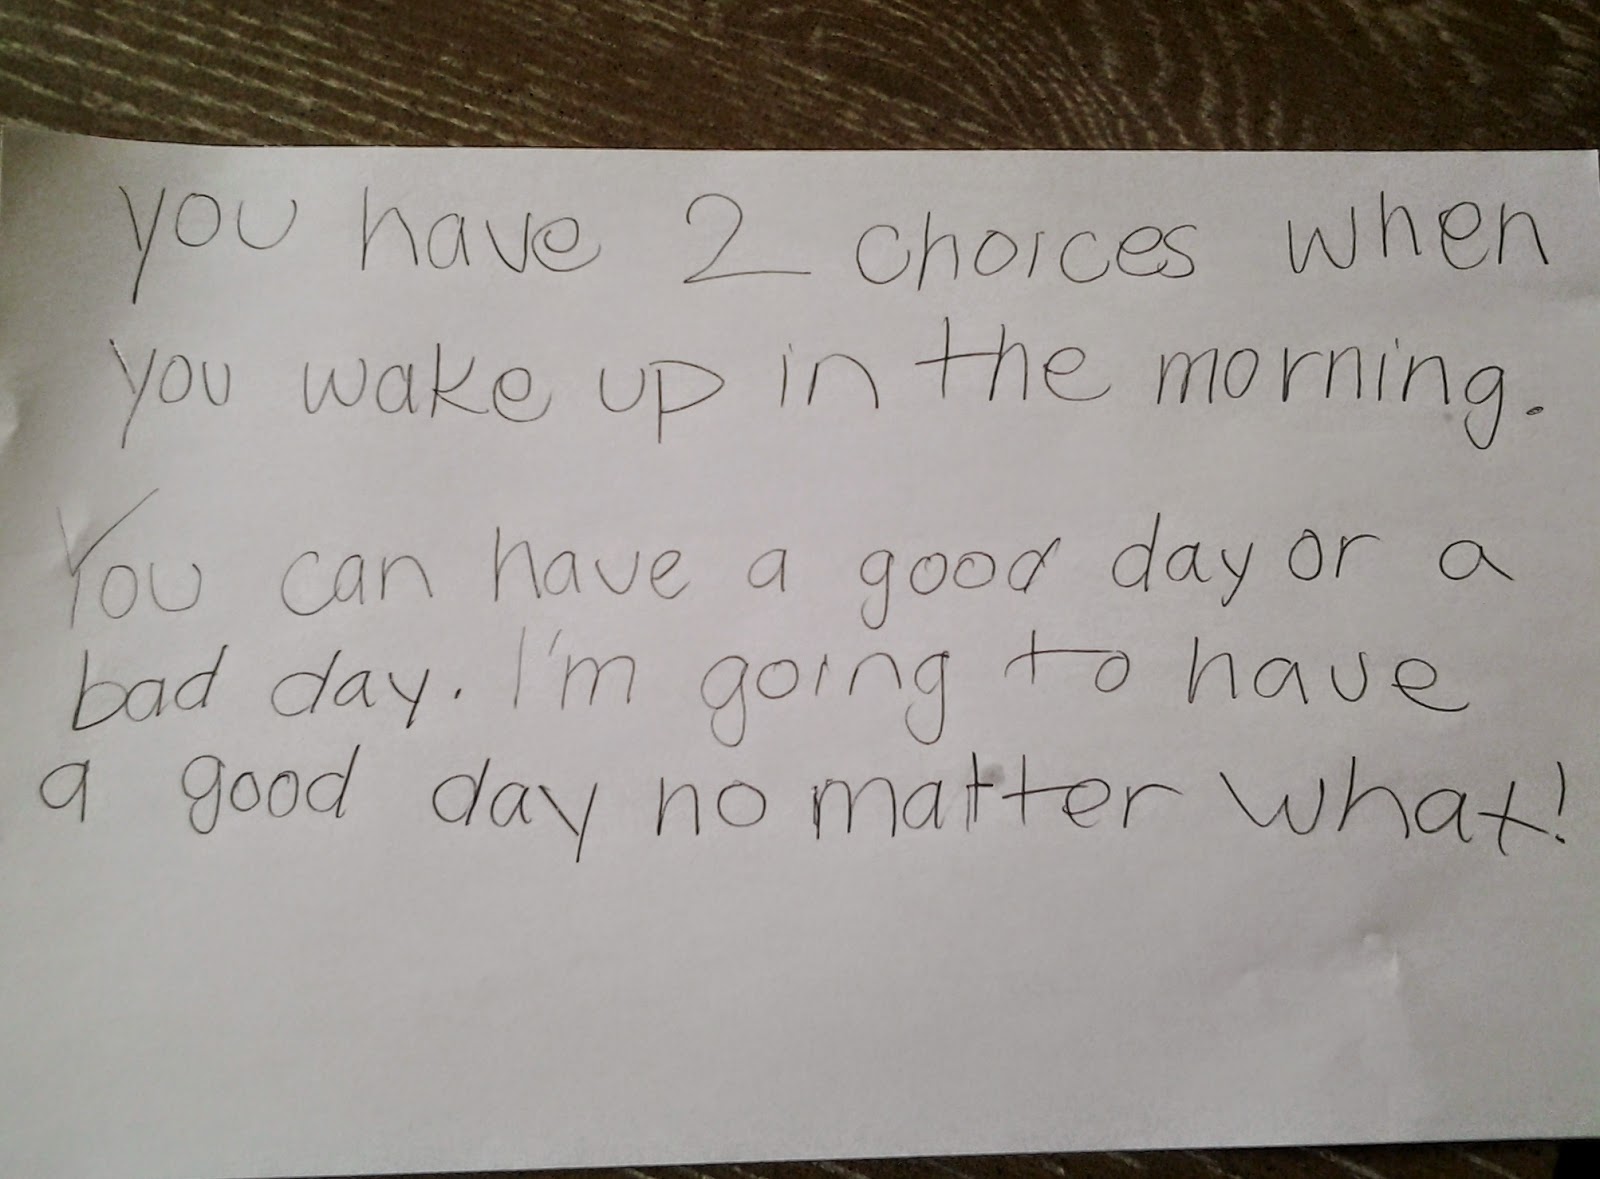 you have 2 choices when
you wake up in the morning.
You can have a good day or a
bad day. I'm going to have
a good day no matter what!